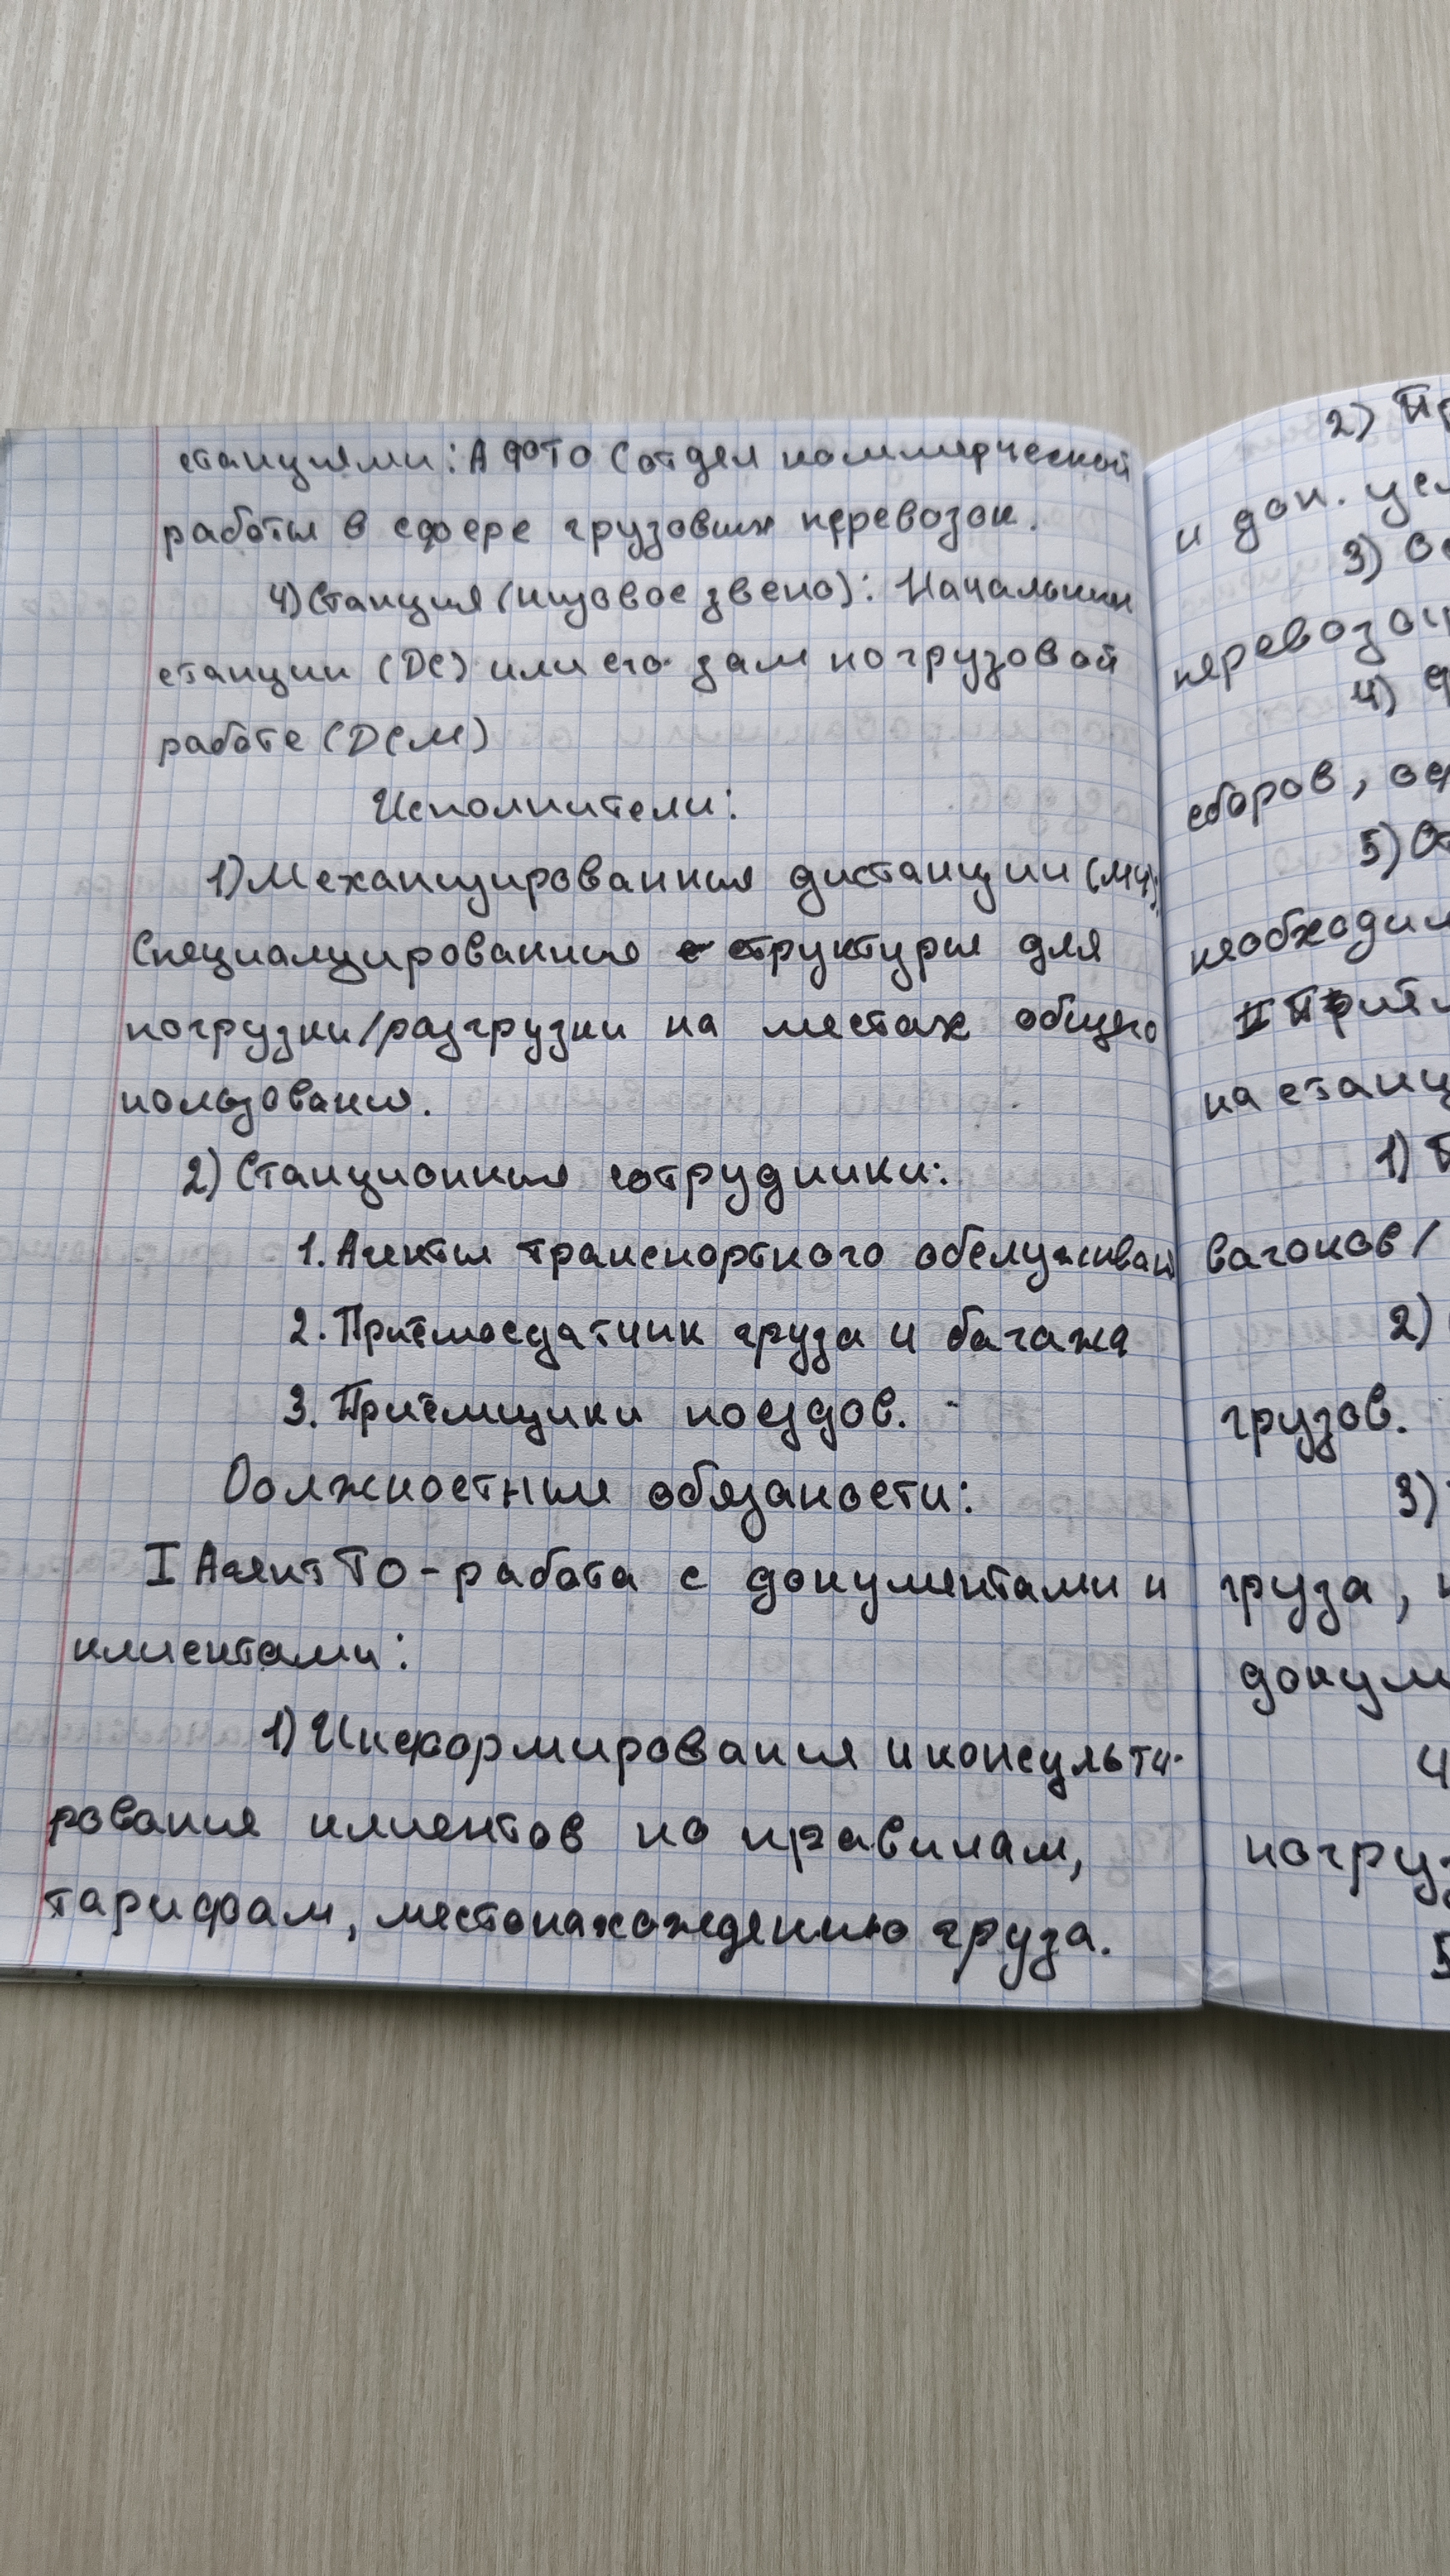 станциями: АФТО (отдел коммерческой
работы в сфере грузовых перевозок.
4) Станция (низовое звено): Начальник
станции (ДС) или его зам по грузовой
работе (ДСМ)
Исполнители:
1) Механизированныя дистанции (МЧ).
Специализированные структуры для
погрузки/разгрузки на местах общего
пользования.
2) Станционные сотрудники:
1. Агенты транспортного обслуживан
2. Приёмосдатчик груза и багажа
3. Приёмщики поездов.
Должностные обязаности:
I Агент ТО - работа с документами и
клиентами:
1) Информирования и консульти-
рования клиентов по правилам,
тарифам, местонахождению груза.
2) Пр
и доп. усл
3) Оф
перевозоч
4)
сборов, оф
5) От
необходим
II Приём
на станц
1) П
вагонов/
2)
грузов.
3)
груза,
докум
4
погруз
5